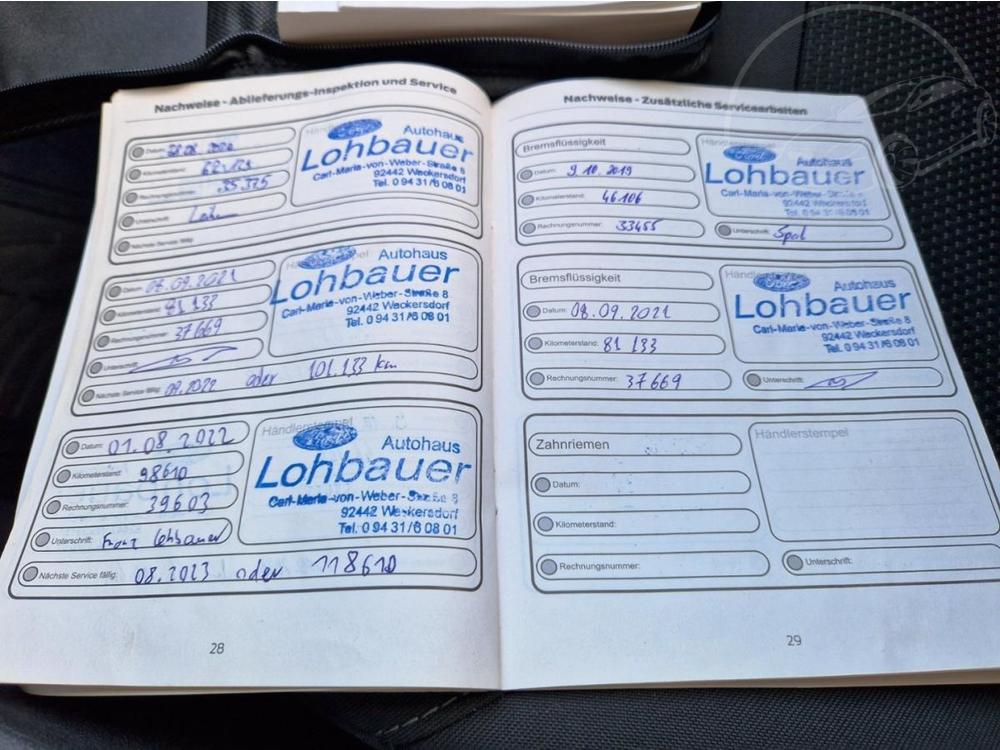 Nachweise - Ablieferungs-Inspektion und Service
Datum:
Rechnungsnummer:
35.375
Unterschrift:
Nächste Service fällig:
Autohaus
Lohbauer
Carl-Maria-von-Weber-Straße 8
92442 Wackersdorf
Tel. 0 94 31/6 08 01
Datum: 08.09.2021
Kilometerstand: 81 133
Rechnungsnummer: 37669
Unterschrift:
Nächste Service fällig: 09.2022 oder 101.133 km
Händlerstempel
Autohaus
Lohbauer
Carl-Maria-von-Weber-Straße 8
92442 Wackersdorf
Tel. 0 94 31/6 08 01
Datum: 01.08.2022
Kilometerstand: 98610
Rechnungsnummer: 39603
Unterschrift: Franz Lohbauer
Nächste Service fällig: 08.2023 oder 118610
Händlerstempel
Autohaus
Lohbauer
Carl-Maria-von-Weber-Straße 8
92442 Wackersdorf
Tel. 0 94 31/6 08 01
28
Nachweise - Zusätzliche Servicearbeiten
Bremsflüssigkeit
Datum: 9.10.2019
Kilometerstand: 46106
Rechnungsnummer: 33455
Unterschrift:
Händlerstempel
Ford
Autohaus
Lohbauer
Carl-Maria-von-Weber-Straße 8
92442 Wackersdorf
Tel. 0 94 31/6 08 01
Bremsflüssigkeit
Datum: 08.09.2021
Kilometerstand: 81 133
Rechnungsnummer: 37669
Unterschrift:
Händlerstempel
Autohaus
Lohbauer
Carl-Maria-von-Weber-Straße 8
92442 Wackersdorf
Tel. 0 94 31/6 08 01
Zahnriemen
Datum:
Kilometerstand:
Rechnungsnummer:
Händlerstempel
Unterschrift:
29